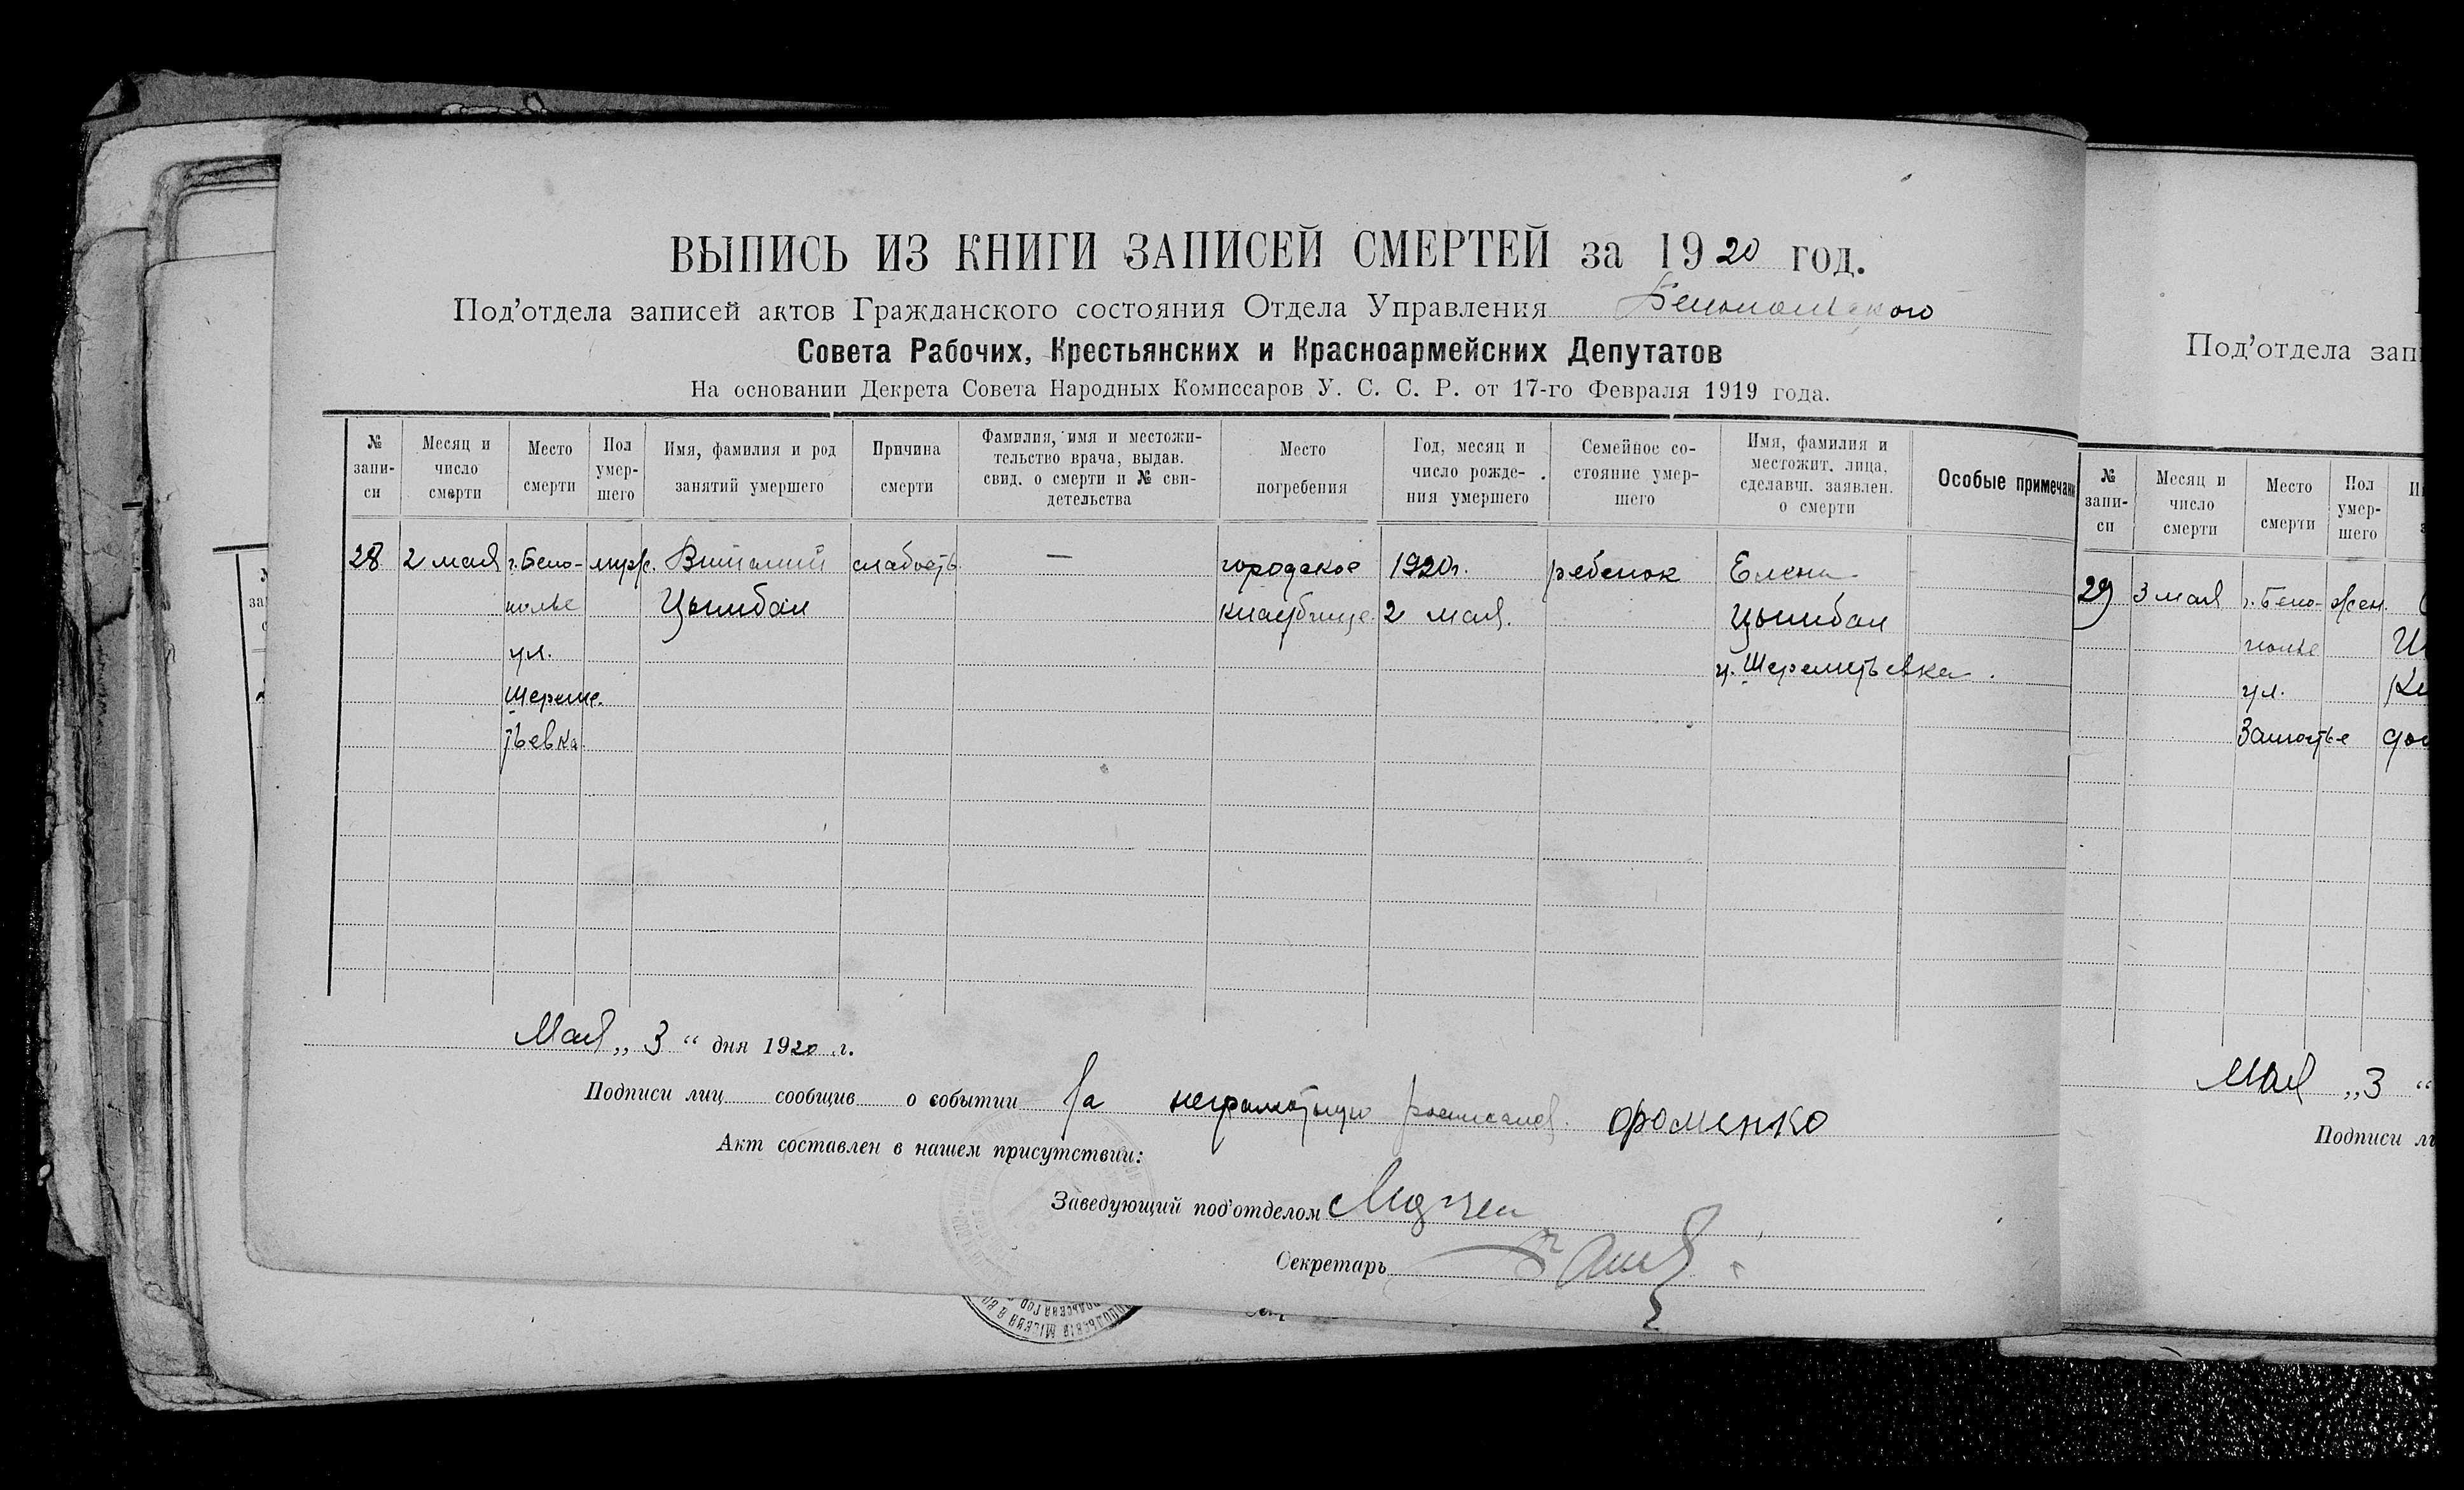 ВЫПИСЬ ИЗ КНИГИ ЗАПИСЕЙ СМЕРТЕЙ за 1920 год.
Под'отдела записей актов Гражданского состояния Отдела Управления Белопольского
Совета Рабочих, Крестьянских и Красноармейских Депутатов
На основании Декрета Совета Народных Комиссаров У. С. С. Р. от 17-го Февраля 1919 года.
№ запи-си
Месяц и число смерти
Место смерти
Пол умер-шего
Имя, фамилия и род занятий умершего
Причина смерти
Фамилия, имя и местожи-тельство врача, выдав. свид. о смерти и № сви-детельства
Место погребения
Год, месяц и число рожде-ния умершего
Семейное со-стояние умер-шего
Имя, фамилия и местожит. лица, сделавш. заявлен. о смерти
Особые примечани
28 2 мая г. Бело- муж. Виталий слабость — городское 1920г. ребенок Елена
полье Цымбал кладбище 2 мая. Цымбал
ул. у. Шереметьевка.
Шереме.
тьевка
Мая „ 3 “ дня 1920 г.
Подписи лиц сообщив о событии За неграмотную росписался. Фоменко
Акт составлен в нашем присутствии:
Заведующий под'отделом
Секретарь
Под'отдела зап
№ запи-си
Месяц и число смерти
Место смерти
Пол умер-шего
29 3 мая г. Бело- жен.
полье
ул.
Замостье
Мая „ 3 “
Подписи ли